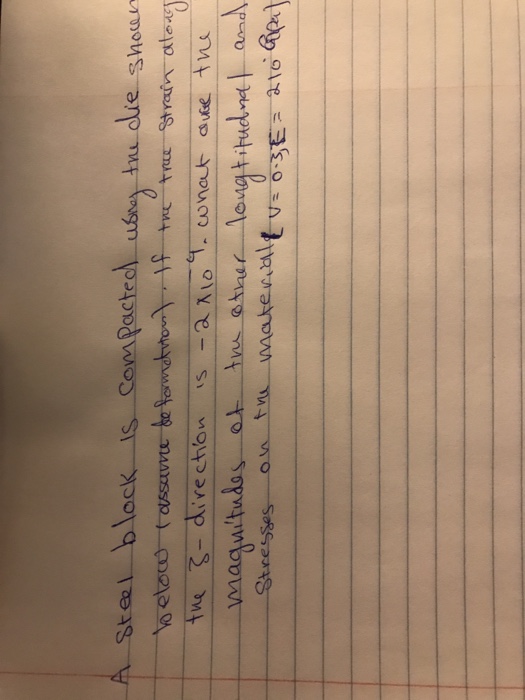 A Steel block is compacted using the die shown
below (assume deformation). If the true strain along
the 3-direction is -2x10⁻⁴. what are the
magnitudes of the other longtitudnal and
stresses on the material [ V = 0.3, E = 210 Gpa]